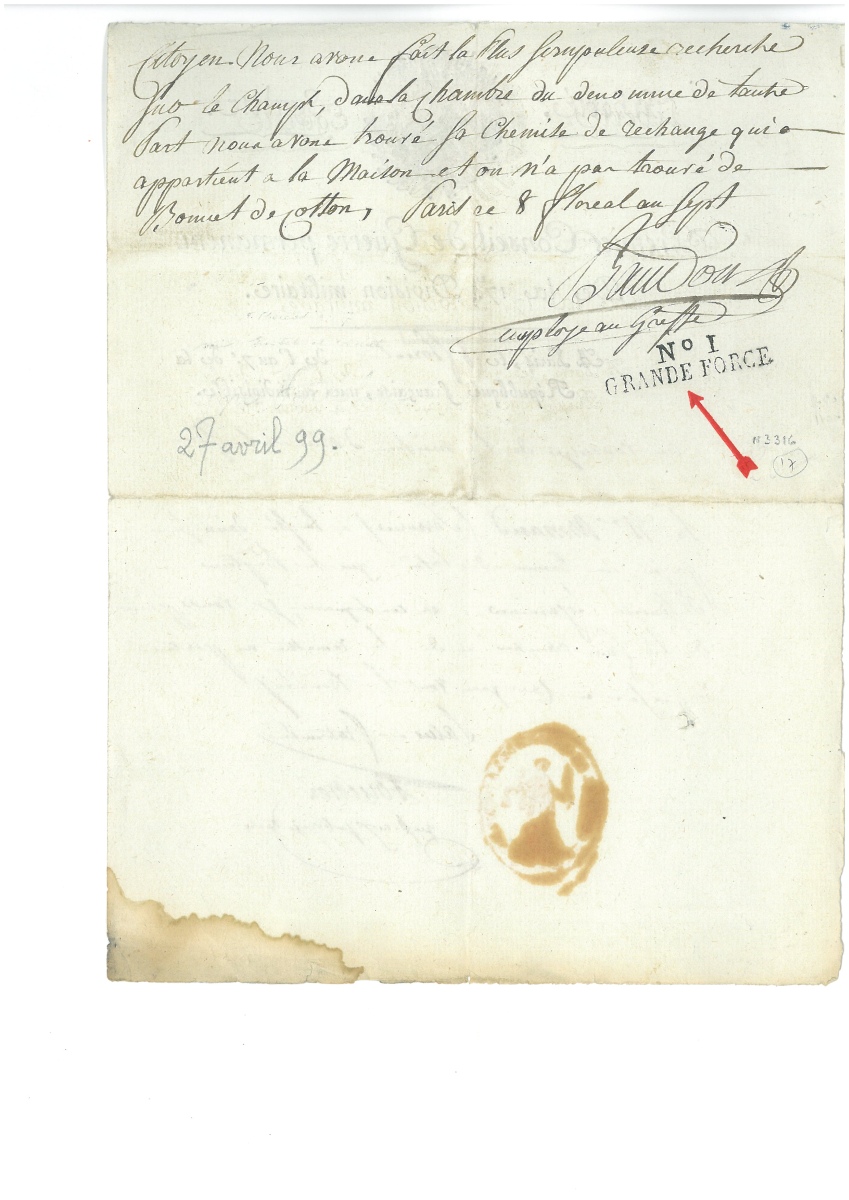 Citoyen. Nous avons fait la plus scrupuleuse recherche
sur le Champs, dans la Chambre du denommé de lautre
Part nous avons trouvé sa Chemise de rechange qui
appartient a la Maison et on n'a pas trouvé de
Bonnet de Cotton, Paris ce 8 floreal an Sept
employe au Greffe
Nº I
GRANDE FORCE
27 avril 99.
N 3316
17